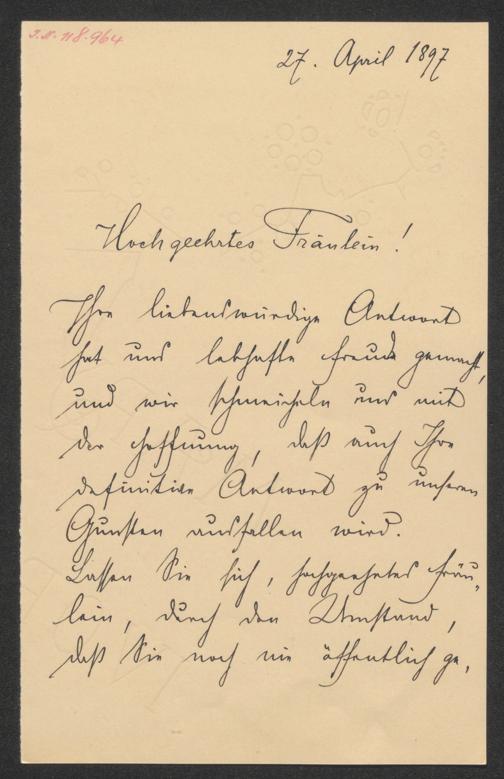 J.N. 118.964
27. April 1897
Hochgeehrtes Fräulein!
Ihre liebenswürdige Antwort
hat uns lebhafte Freude gemacht,
und wir schmeicheln uns mit
der Hoffnung, daß auch Ihre
definitive Antwort zu unseren
Gunsten ausfallen wird.
Lassen Sie sich, hochgeehrtes Fräu-
lein, durch den Umstand,
daß Sie noch nie öffentlich ge-